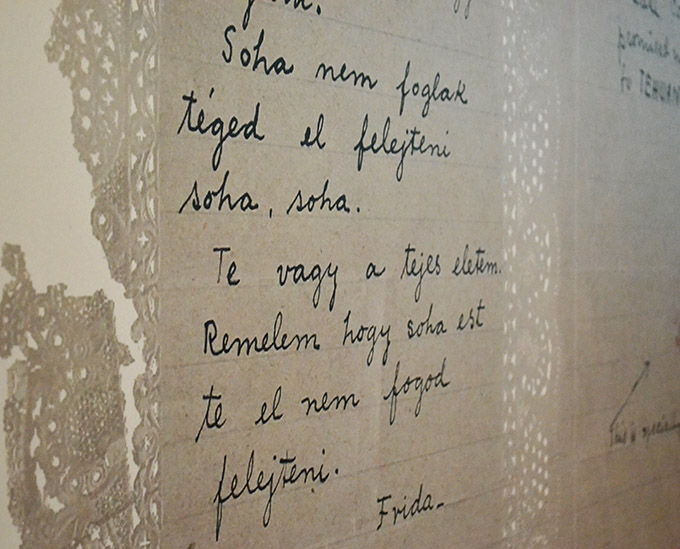 Soha nem foglak
téged el felejteni
soha, soha.
Te vagy a tejes eletem.
Remelem hogy soha est
te el nem fogod
felejteni.
Frida-
to TEHUAN
This is